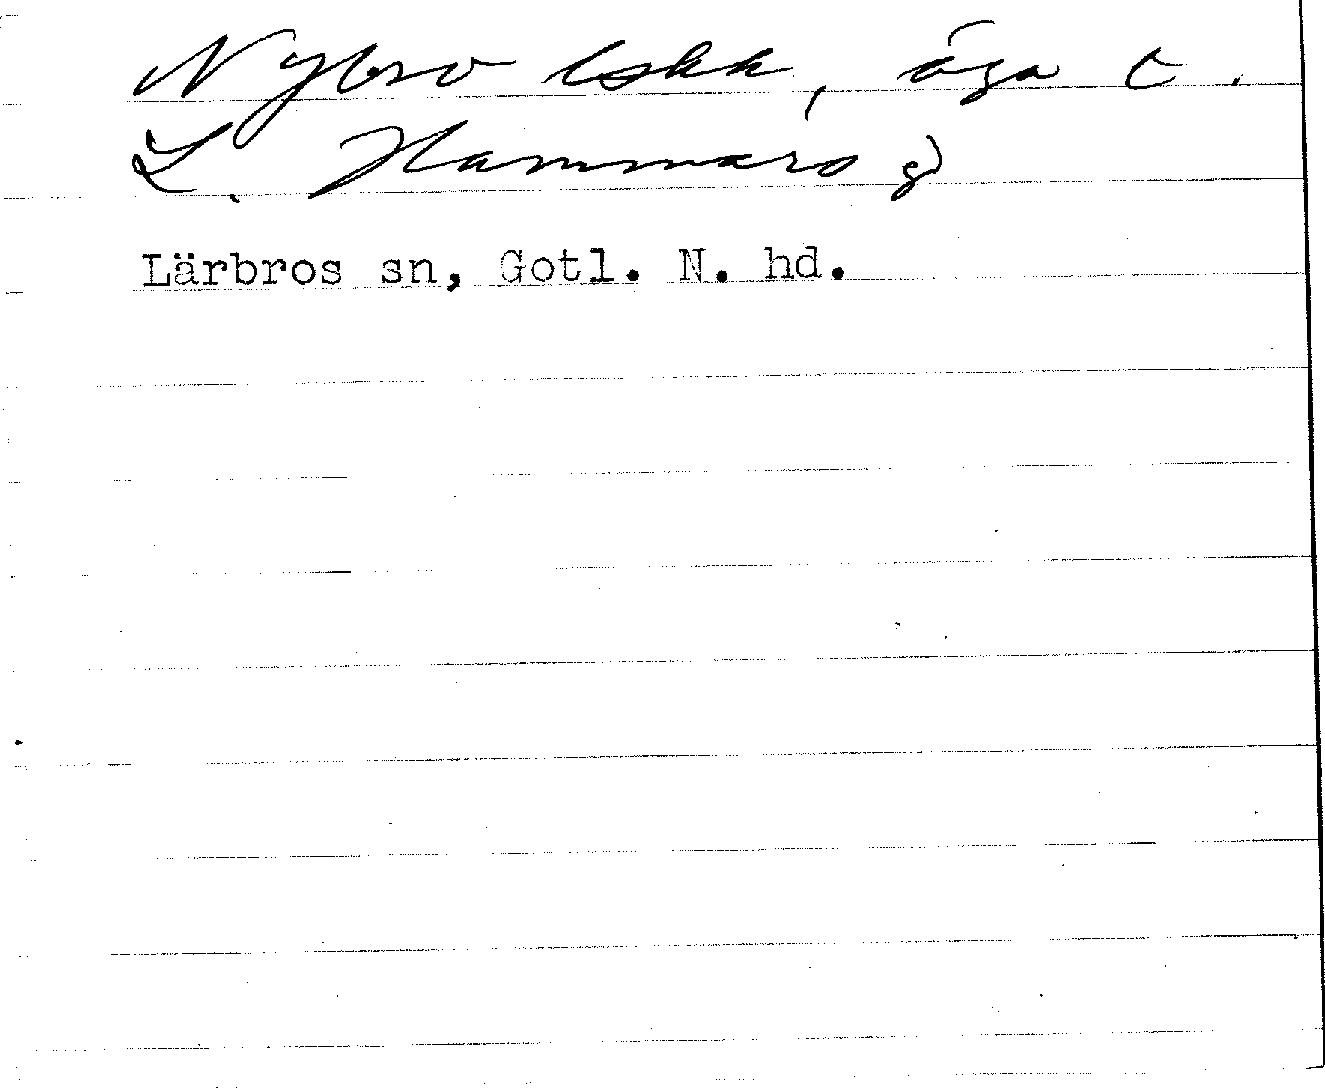 Nybro lskk, äga t.
L. Hammars gd
Lärbros sn, Gotl. N. hd.